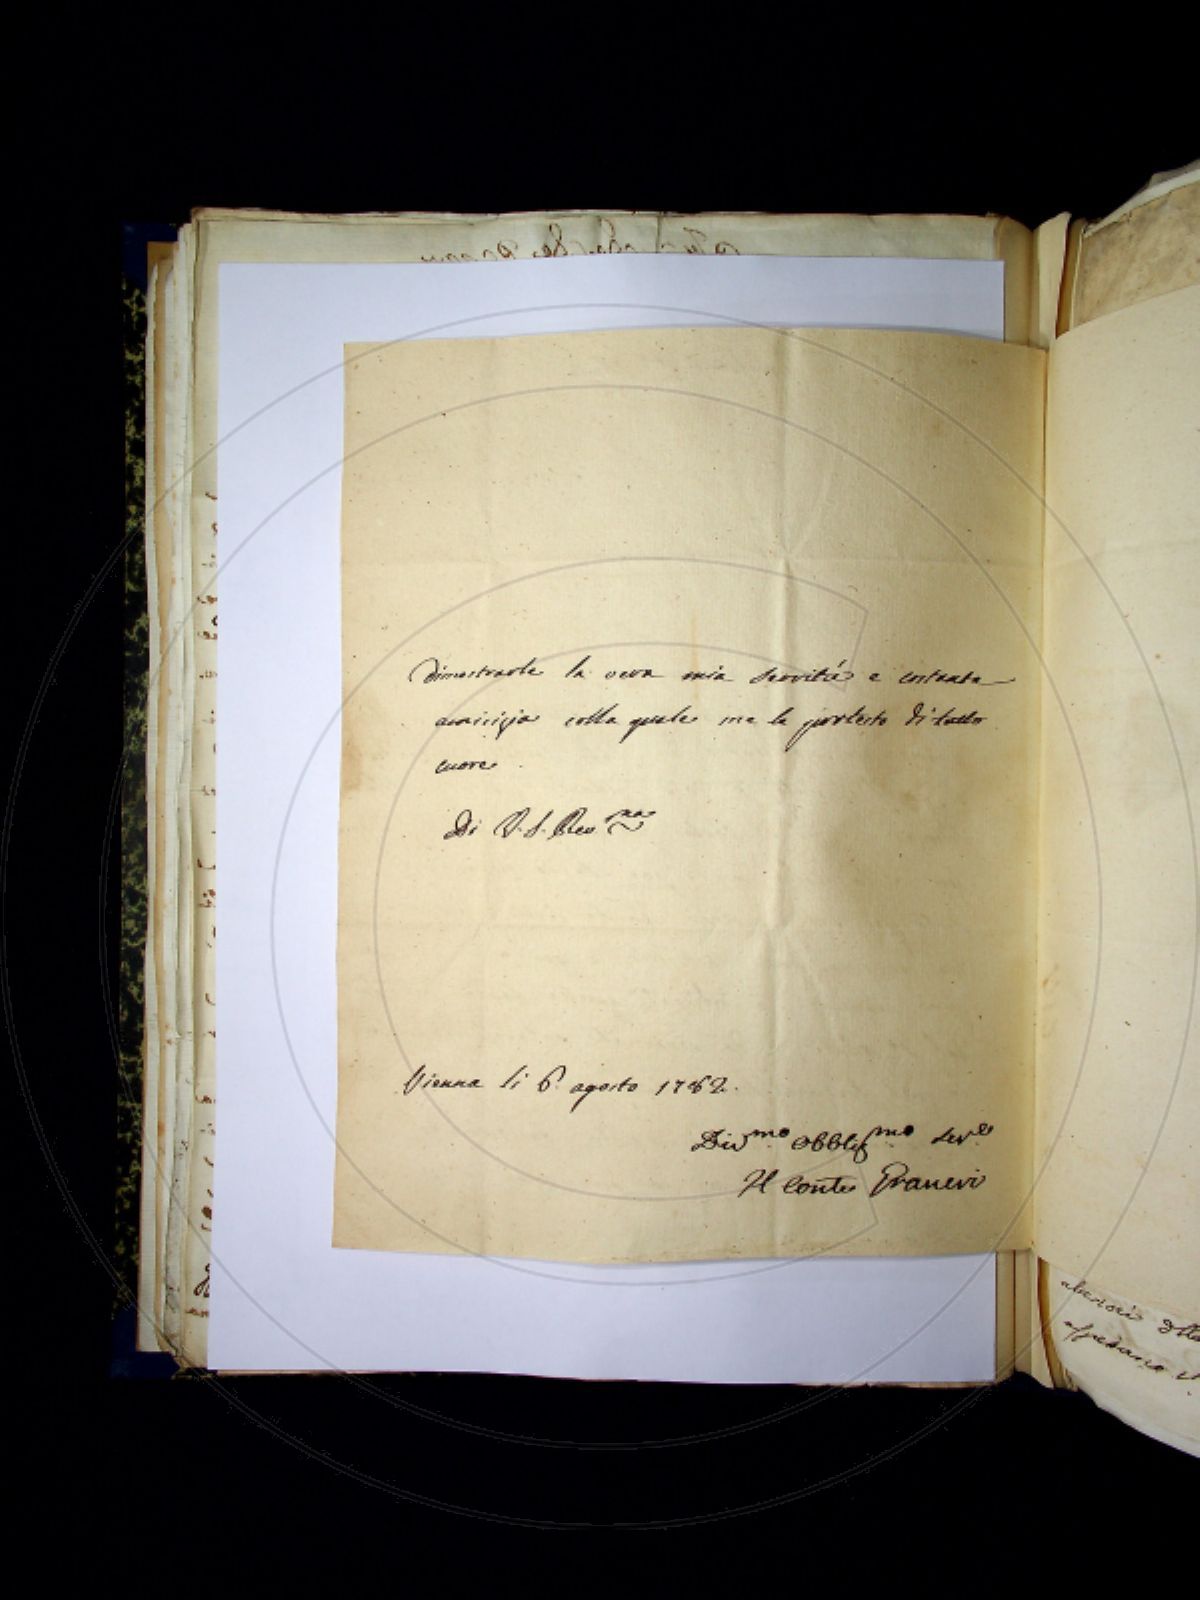 dimostrarle la vera mia servitú e costante
amicizia colla quale me le protesto di tutto
cuore.
Di V. S. Rev.ma
Vienna li 6. agosto 1782.
Div.mo obblig.mo ser.e
Il Conte Graneri